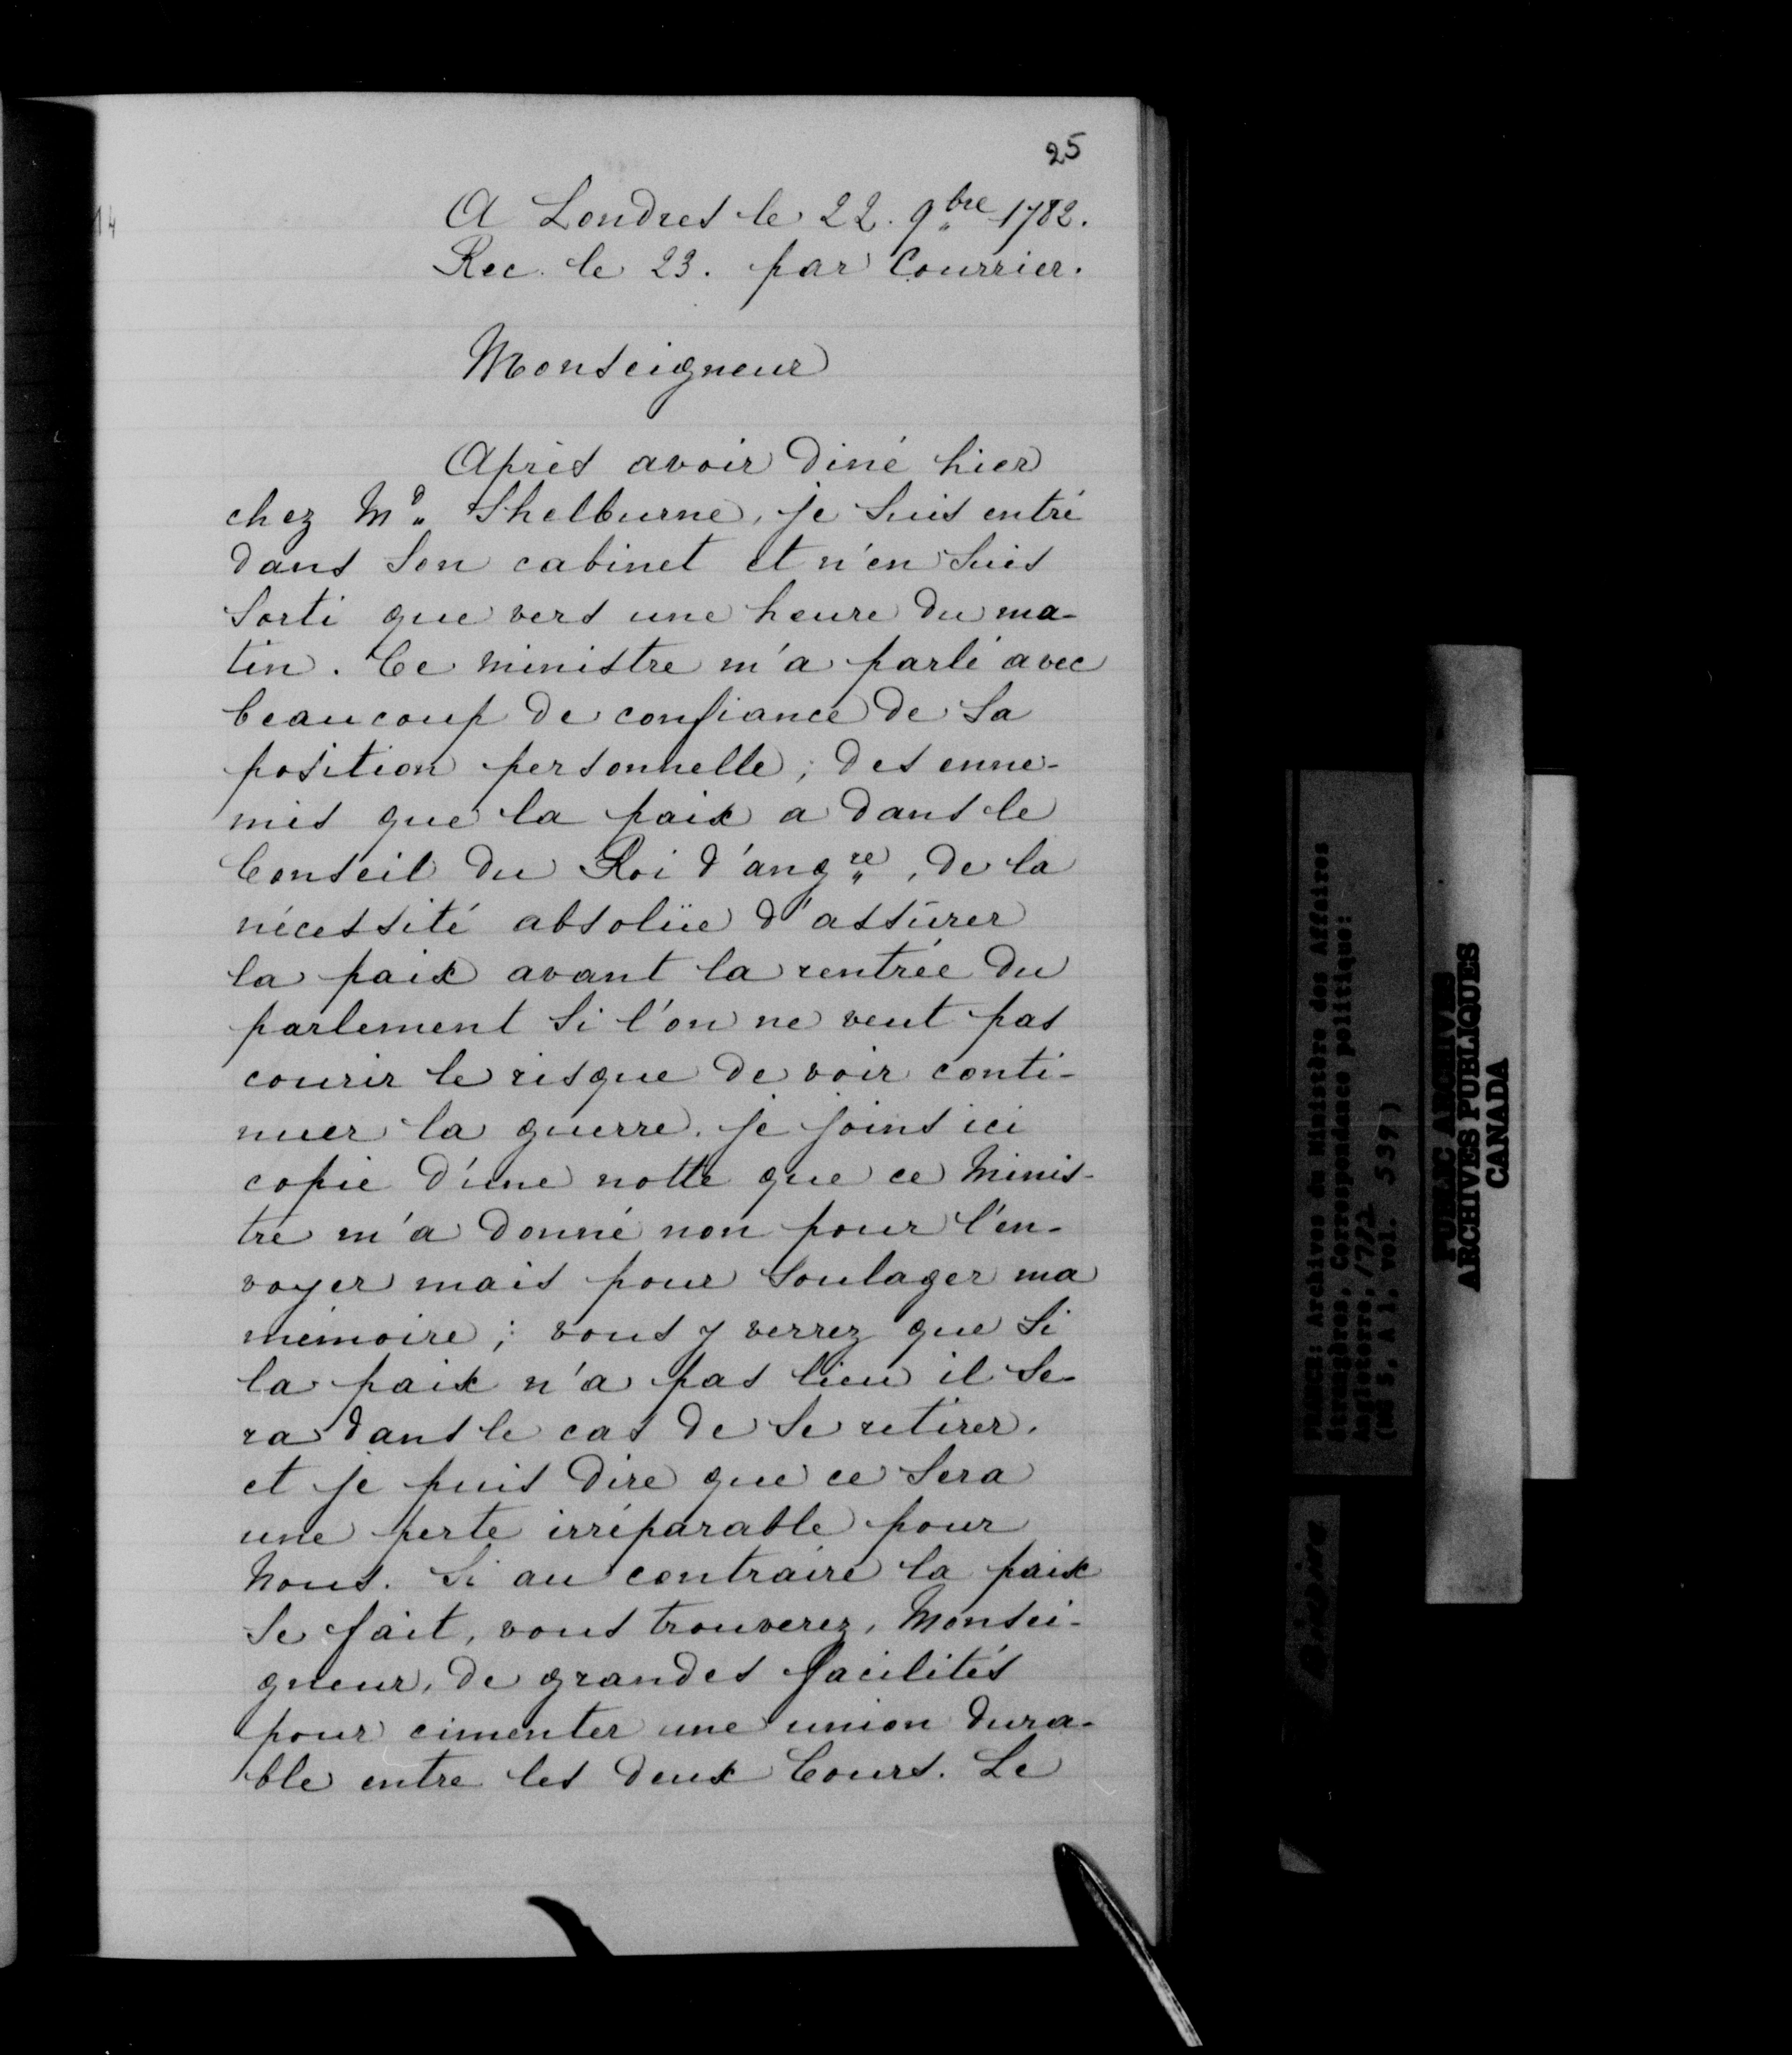 25
14
A Londres le 22. 9bre 1782.
Rec. le 23. par Courrier.
Monseigneur
Après avoir diné hier
chez Md. Shelburne, je suis entré
dans son cabinet et n'en suis
sorti que vers une heure du ma-
tin. Ce ministre m'a parlé avec
beaucoup de confiance de sa
position personnelle; des enne-
mis que la paix a dans le
Conseil du Roi d'angre, de la
nécessité absolüe d'assurer
la paix avant la rentrée du
parlement si l'on ne veut pas
courir le risque de voir conti-
nuer la guerre. je joins ici
copie d'une notte que ce Minis-
tre m'a donné non pour l'en-
voyer mais pour soulager ma
mémoire; vous y verrez que si
la paix n'a pas lieu il se-
ra dans le cas de se retirer.
et je puis dire que ce sera
une perte irréparable pour
nous. Si au contraire la paix
se fait, vous trouverez, Monsei-
gneur, de grandes facilités
pour cimenter une union dura-
ble entre les deux Cours. Le
FRANCE: Archives du Ministère des Affaires
Etrangères, Correspondance politique:
Angleterre, 1782
(MG 5, A 1, vol. 539)
PUBLIC ARCHIVES
ARCHIVES PUBLIQUES
CANADA